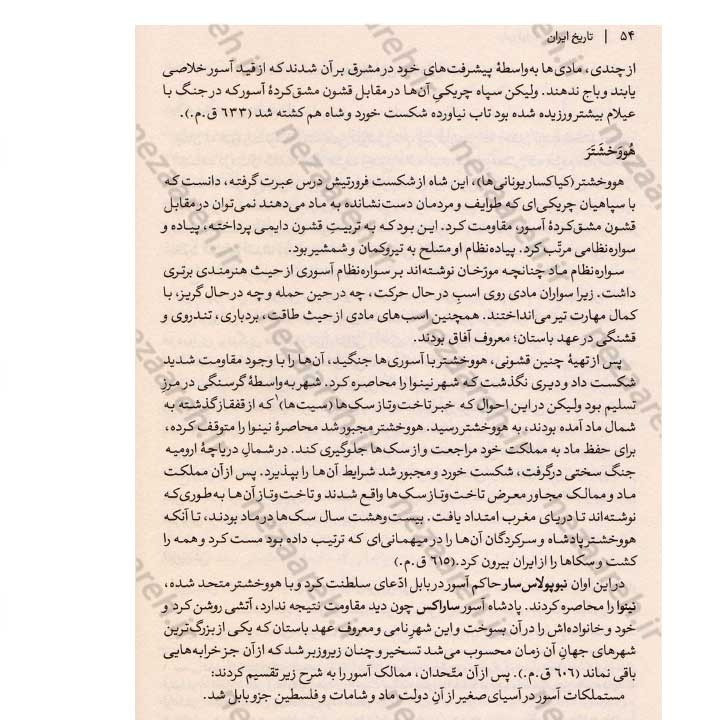 ۵۴ | تاریخ ایران
از چندی، مادی‌ها به‌واسطهٔ پیشرفت‌های خود در مشرق بر آن شدند که از قید آسور خلاصی
یابند و باج ندهند. ولیکن سپاه چریکیِ آن‌ها در مقابل قشون مشق‌کردهٔ آسور که در جنگ با
عیلام بیشتر ورزیده شده بود تاب نیاورده شکست خورد و شاه هم کشته شد (۶۳۳ ق.م.).
هُووَخشَتَرَ
هووخشتر (کیاکسار یونانی‌ها)، این شاه از شکست فرورتیش درس عبرت گرفته، دانست که
با سپاهیان چریکی‌ای که طوایف و مردمان دست‌نشانده به ماد می‌دهند نمی‌توان در مقابل
قشون مشق‌کردهٔ آسور، مقاومت کرد. این بود که به تربیتِ قشون دایمی پرداخته، پیاده و
سواره‌نظامی مرتّب کرد. پیاده‌نظام او متسلح به تیروکمان و شمشیر بود.
سواره‌نظام ماد چنانچه مورّخان نوشته‌اند بر سواره‌نظام آسوری از حیث هنرمندی برتری
داشت. زیرا سواران مادی روی اسبِ در حال حرکت، چه در حین حمله و چه در حال گریز، با
کمال مهارت تیر می‌انداختند. همچنین اسب‌های مادی از حیث طاقت، بردباری، تندروی و
قشنگی در عهد باستان؛ معروف آفاق بودند.
پس از تهیهٔ چنین قشونی، هووخشتر با آسوری‌ها جنگید، آن‌ها را با وجود مقاومت شدید
شکست داد و دیری نگذشت که شهر نینوا را محاصره کرد. شهر به‌واسطهٔ گرسنگی در مرزِ
تسلیم بود ولیکن در این احوال که خبر تاخت‌وتاز سک‌ها (سیت‌ها)۱ که از قفقاز گذشته به
شمال ماد آمده بودند، به هووخشتر رسید. هووخشتر مجبور شد محاصرهٔ نینوا را متوقف کرده،
برای حفظ ماد به مملکت خود مراجعت و از سک‌ها جلوگیری کند. در شمالِ دریاچهٔ ارومیه
جنگ سختی درگرفت، شکست خورد و مجبور شد شرایط آن‌ها را بپذیرد. پس از آن مملکت
ماد و ممالک مجاور معرض تاخت‌وتاز سک‌ها واقع شدند و تاخت‌وتاز آن‌ها به طوری‌که
نوشته‌اند تا دریای مغرب امتداد یافت. بیست‌وهشت سال سک‌ها در ماد بودند، تا آنکه
هووخشتر پادشاه و سرکردگان آن‌ها را در میهمانی‌ای که ترتیب داده بود مست کرد و همه را
کشت و سکاها را از ایران بیرون کرد.(۶۱۵ ق.م.)
در این اوان نبوپولاس‌سار حاکم آسور در بابل ادّعای سلطنت کرد و با هووخشتر متحد شده،
نینوا را محاصره کردند. پادشاه آسور ساراکس چون دید مقاومت نتیجه ندارد، آتشی روشن کرد و
خود و خانواده‌اش را در آن بسوخت و این شهرِ نامی و معروف عهد باستان که یکی از بزرگ‌ترین
شهرهای جهانِ آن زمان محسوب می‌شد تسخیر و چنان زیروزبر شد که از آن جز خرابه‌هایی
باقی نماند (۶۰۶ ق.م.). پس از آن متّحدان، ممالک آسور را به شرح زیر تقسیم کردند:
مستملکات آسور در آسیای صغیر از آنِ دولت ماد و شامات و فلسطین جزو بابل شد.
nezaareh.ir